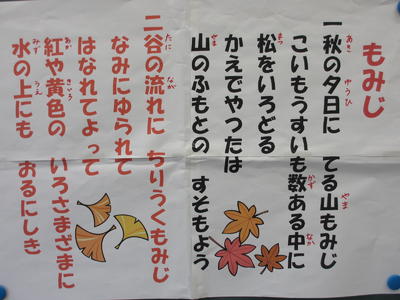 もみじ
一秋の夕日に てる山もみじ
こいもうすいも数ある中に
松をいろどる
かえでやつたは
山のふもとの すそもよう
二谷の流れに ちりうくもみじ
なみにゆられて
はなれてよって
紅や黄色の いろさまざまに
水の上にも おるにしき